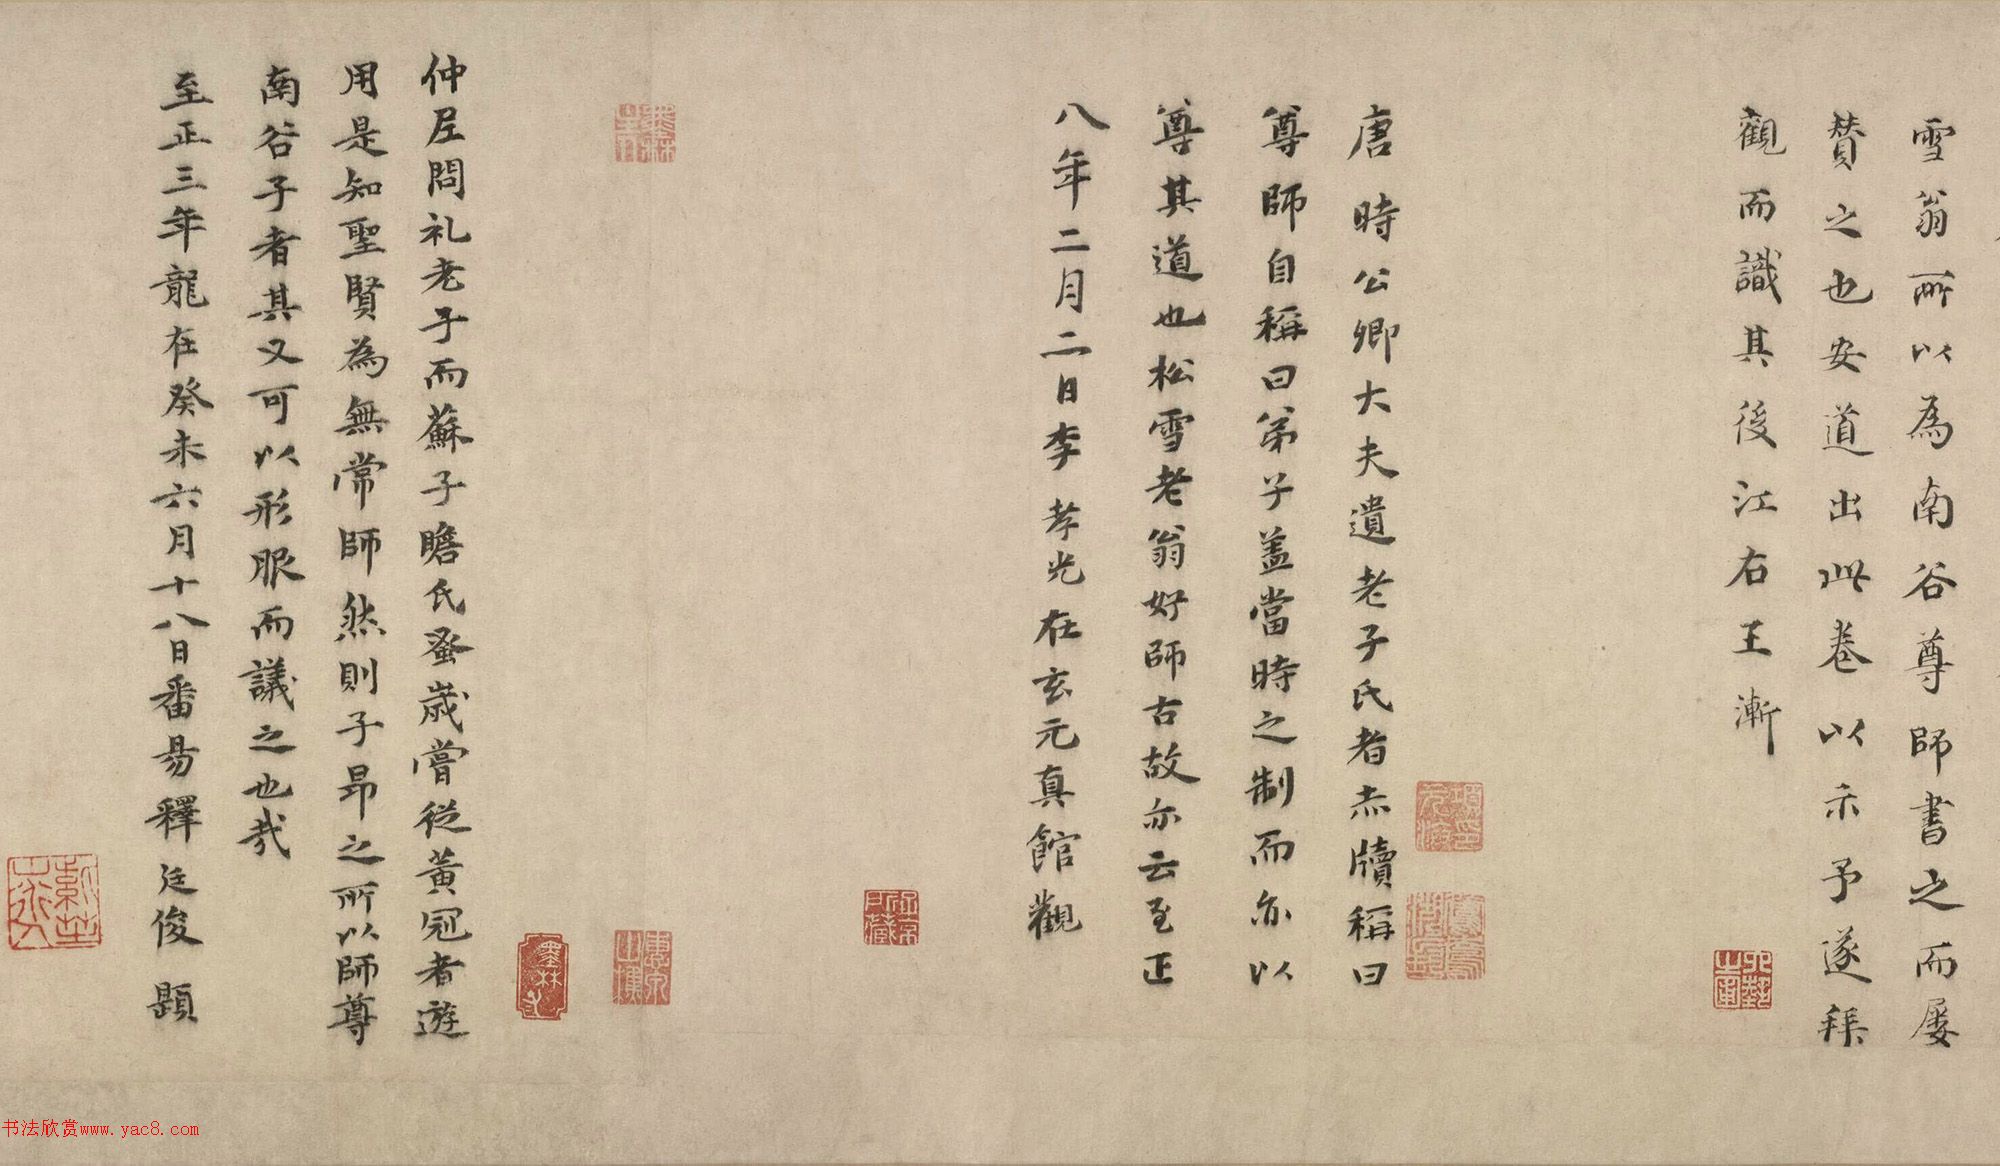 雪翁所以為南谷尊師書之而屡
賛之也安道出此卷以示予遂拜
觀而識其後江右王漸
唐時公卿大夫遺老子氏者赤牘稱曰
尊師自稱曰弟子盖當時之制而亦以
尊其道也松雪老翁好師古故亦云至正
八年二月二日李孝光在玄元真館觀
仲尼問礼老子而蘇子瞻氏蚤歲嘗從黃冠者遊
用是知聖賢為無常師然則子昂之所以師尊
南谷子者其又可以形服而議之也哉
至正三年龍在癸未六月十八日番易釋廷俊題
墨林
書法欣赏www.yac8.com